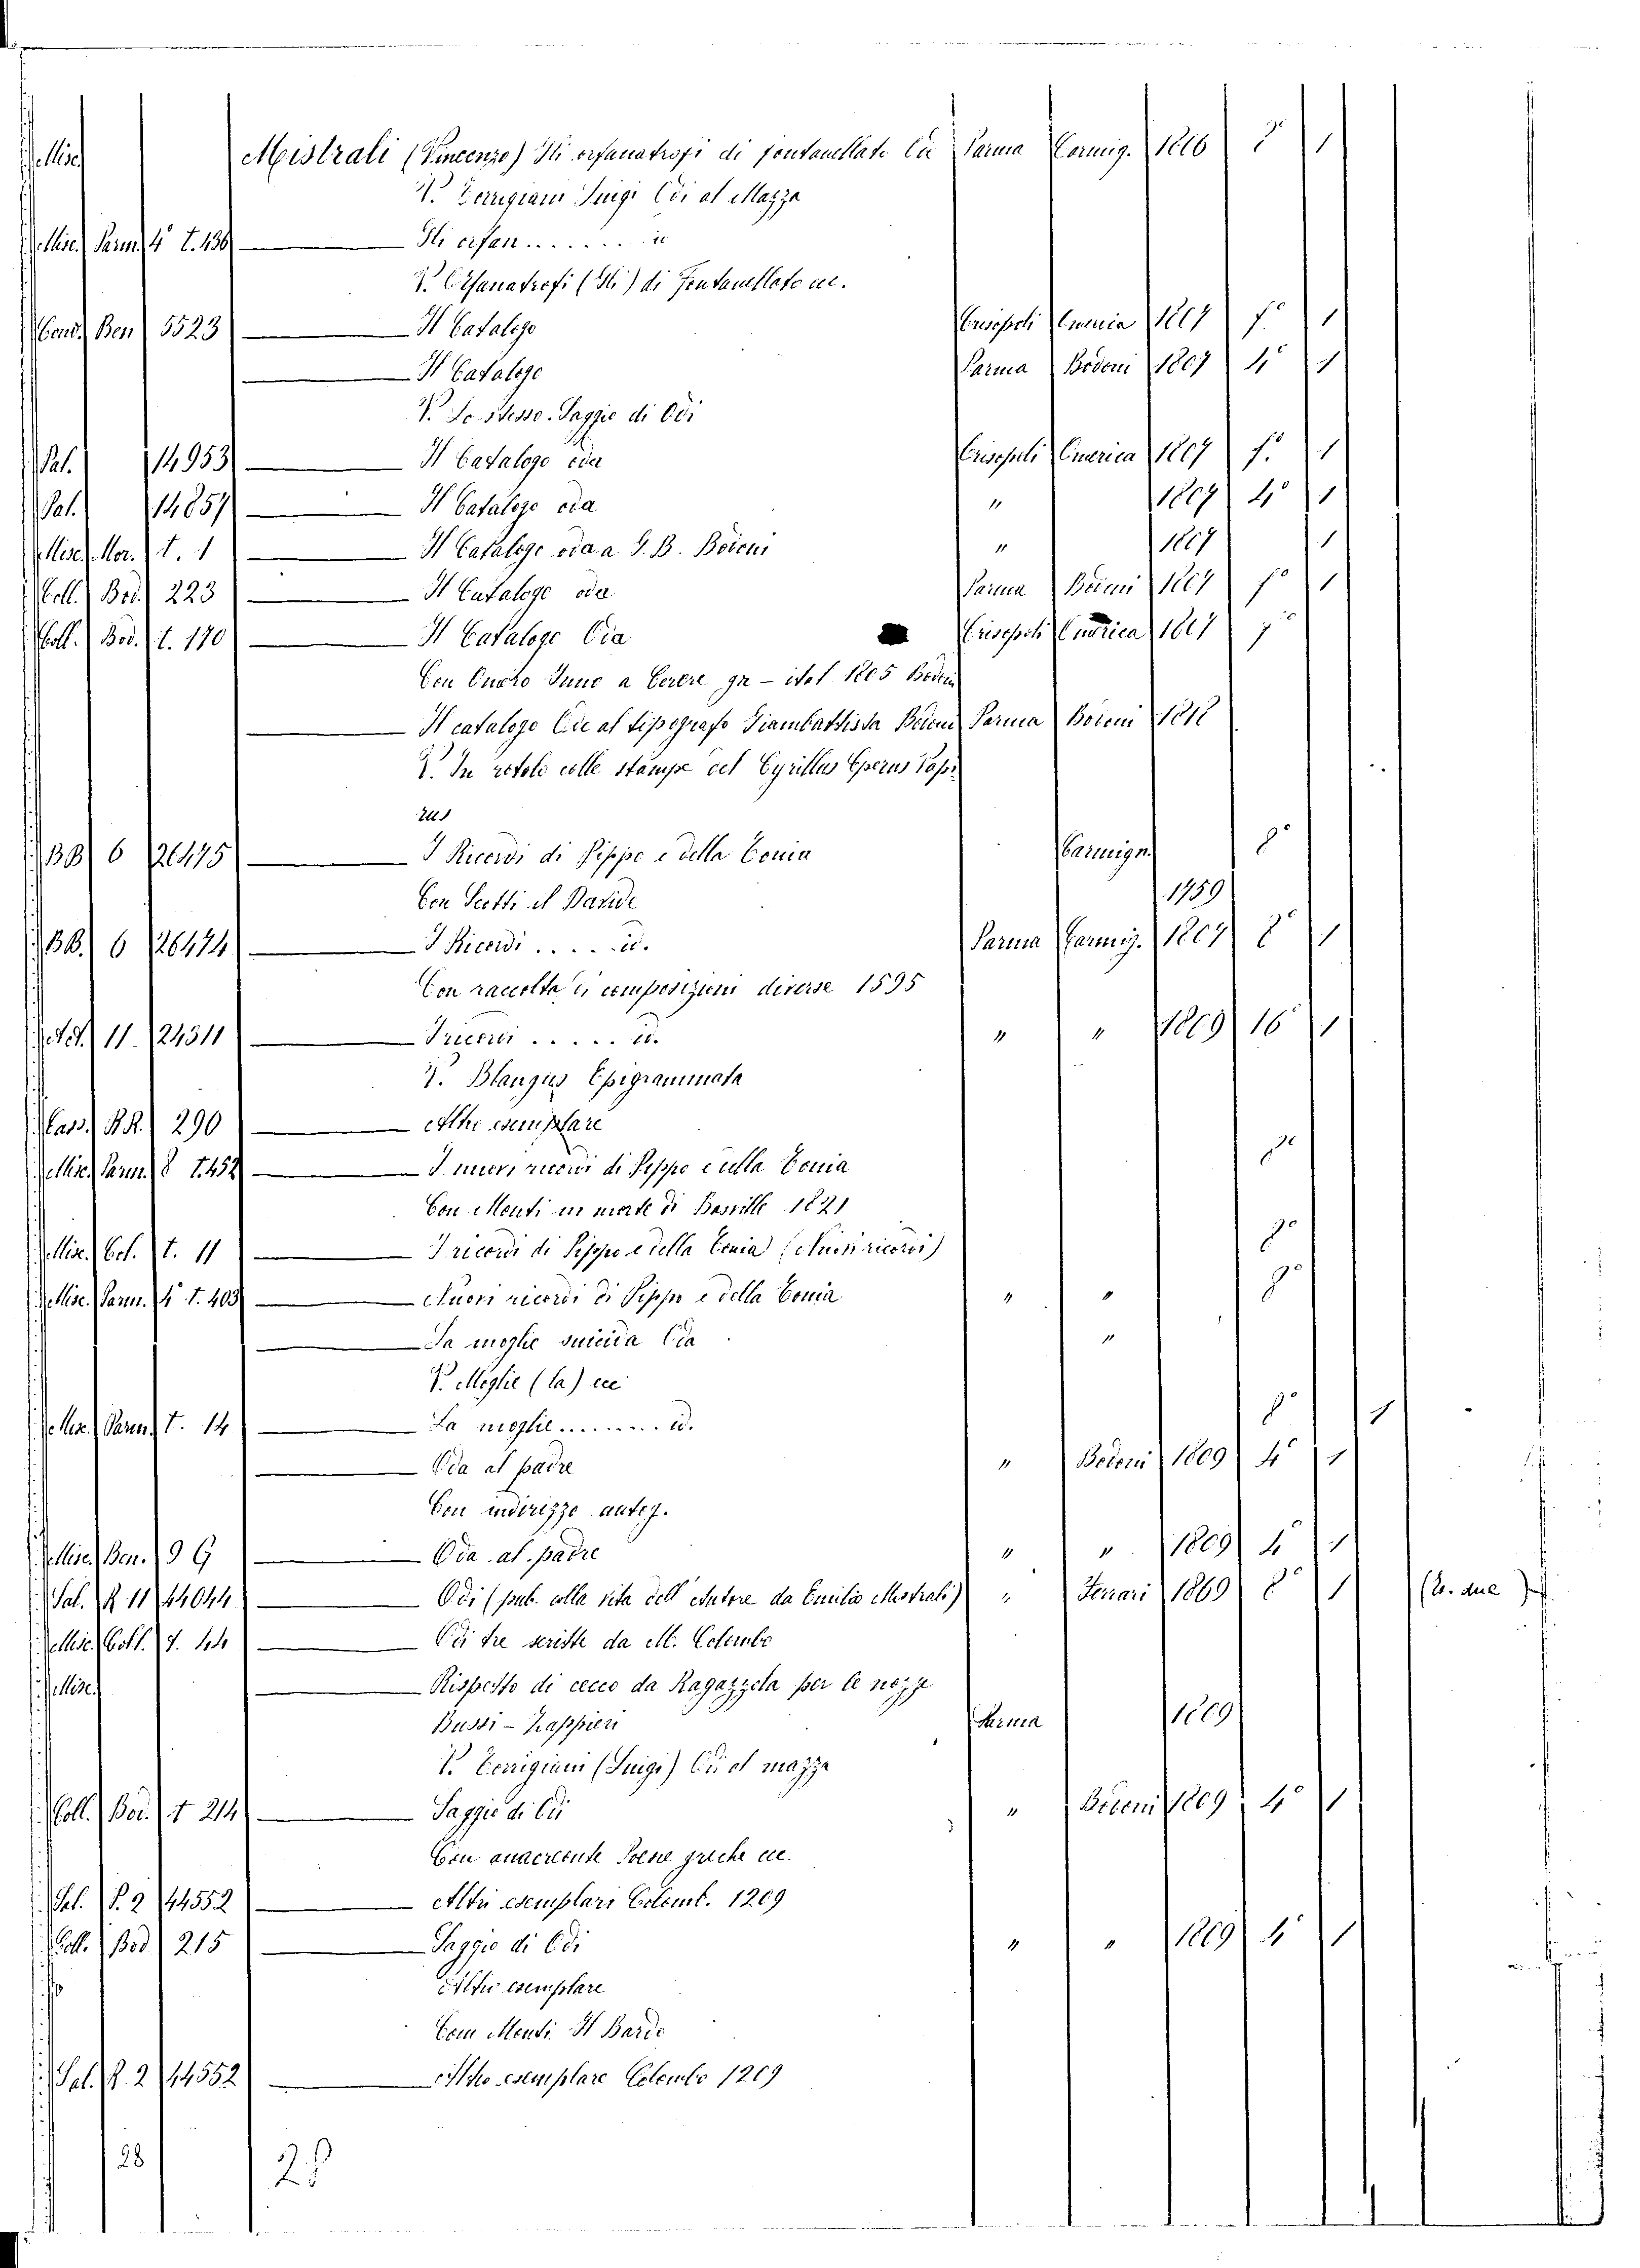 Misc. Mistrali (Vincenzo) Gli orfanotrofi di fontanellato Odi Parma Carmig. 1816 8° 1
V. Cerrigiani Luigi Odi al Mazza
Misc. Parm. 4° t. 436 Gli orfan....... id
V. Orfanotrofi (Gli) di Fontanellato ec.
Cond. Ben 5523 Il Catalogo Crisopoli Omerica 1807 f.° 1
Il Catalogo Parma Bodoni 1807 4° 1
V. Lo stesso. Saggio di Odi
Pal. 14953 Il Catalogo oda Crisopoli Omerica 1807 f.° 1
Pal. 14857 Il Catalogo oda " 1807 4° 1
Misc. Mor. t. 1 Il Catalogo oda a G. B. Bodoni " 1807 1
Coll. Bod. 223 Il Catalogo oda Parma Bodoni 1807 f° 1
Coll. Bod. t. 170 Il Catalogo Oda Crisopoli Omerica 1807
Con Inno a Cerere 1805 Bodoni
Il catalogo Ode al tipografo Giambattista Bodoni Parma Bodoni 1818
V. In rotolo colle stampe del Cyrillus Cyperus Papi
rus
BB 6 26475 I Ricordi di Pippo e della Tonia Carmign. 8°
Con Scotti il Davide 1759
BB. 6 26474 I Ricordi .... id. Parma Carmig. 1807 8° 1
Con raccolta di composizioni diverse 1595
11 24311 I ricordi ..... id. " " 1809 16 1
V. Blangus Epigrammata
Cass. R.R. 290 Altro esemplare
Misc. Parm. 8 t. 452 I nuovi ricordi di Pippo e della Tonia 8°
Con Monti in morte di Basville 1821
Misc. Col. t. 11 I ricordi di Pippo e della Tonia (Nuovi ricordi) 8°
Misc. Parm. 4° t. 403 Nuovi ricordi di Pippo e della Tonia " " 8°
La moglie suicida Oda "
V. Moglie (la) ec
Misc. Parm. t. 14 La moglie........ id. 8° 1
Oda al padre " Bodoni 1809 4° 1
Con indirizzo autog.
Misc. Ben. 9 G Oda al padre " " 1809 4° 1
Sal. R 11 44044 Odi (pub. colla vita dell'Autore da Emilio Mistrali) " Ferrari 1869 8° 1 (2. due
Misc. Coll. t. 44 Odi tre scritte da M. Colombo
Misc. Rispetto di cecco da Ragazzola per le nozze
Bussi - Zappieri Parma 1809
V. Cerrigiani (Luigi) Odi al mazza
Coll. Bod. t 214 Saggio di Odi " Bodoni 1809 4° 1
Con anacreonte Poesie greche ec.
Sal. P. 2 44552 Altri esemplari Colomb. 1209
Coll. Bod. 215 Saggio di Odi " " 1809 4° 1
Altro esemplare
Con Monti Il Bardo
Sal. P. 2 44552 Altro esemplare Colombo 1209
28 28